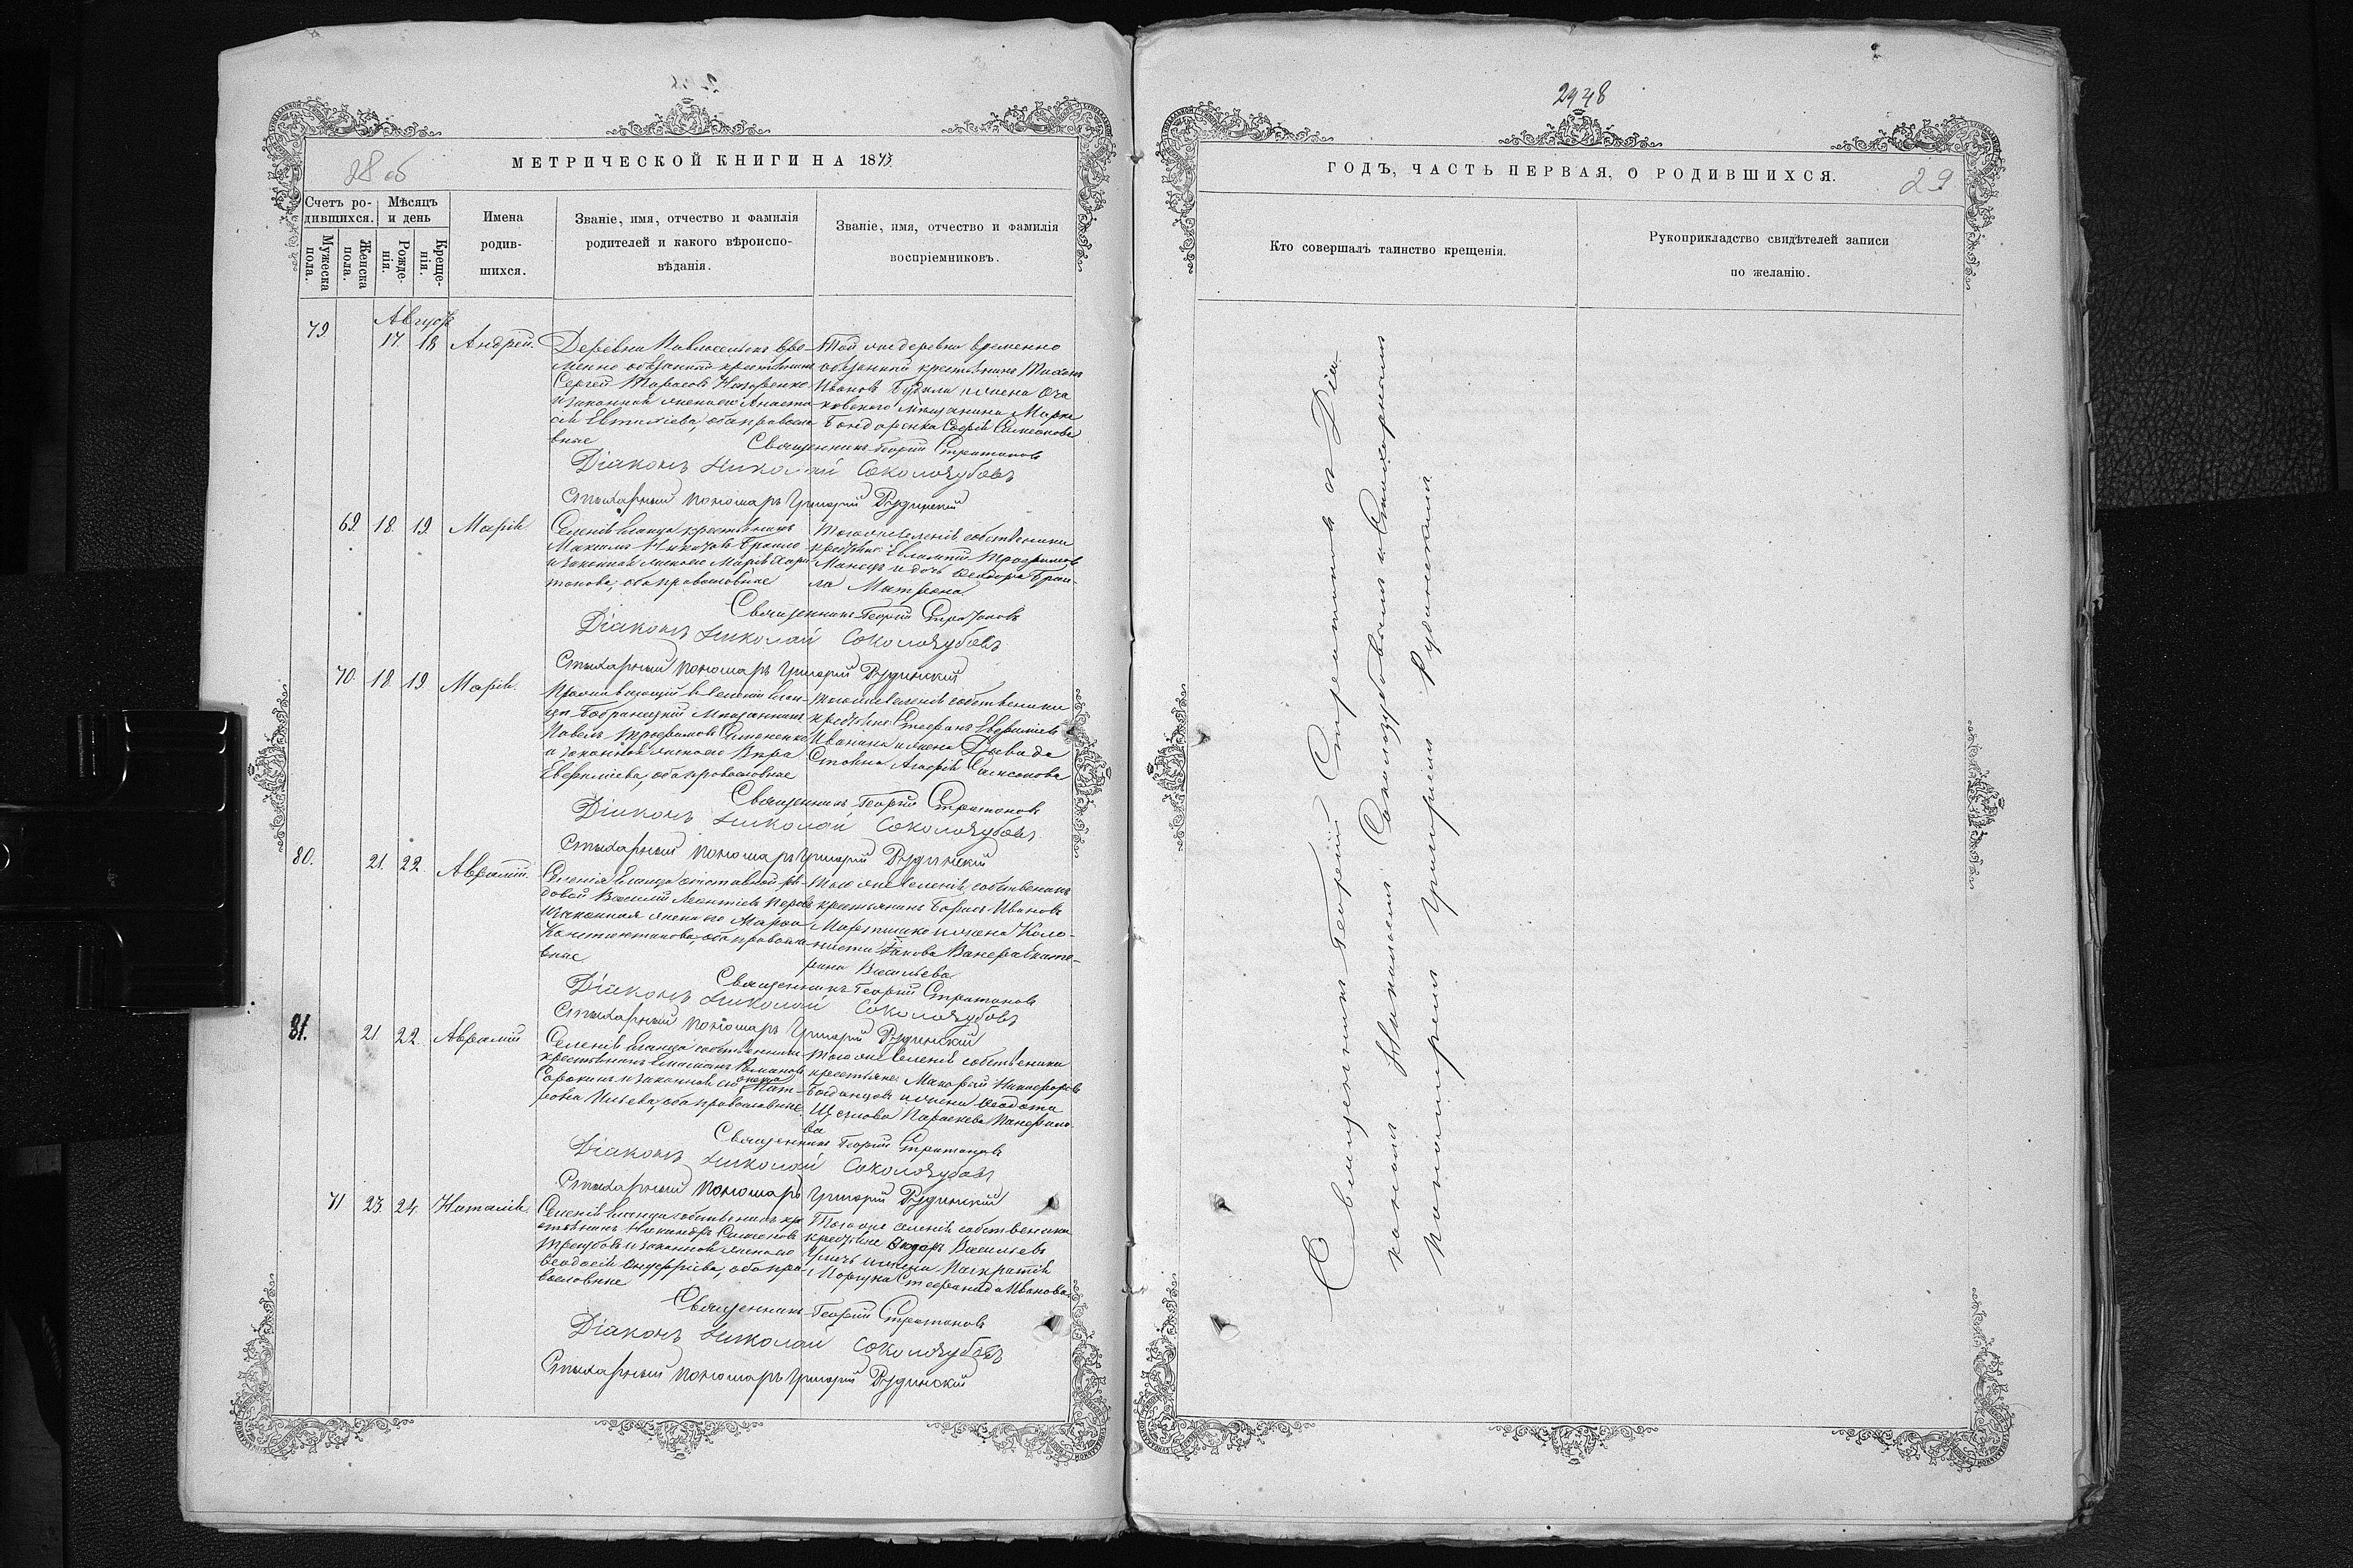 МЕТРИЧЕСКОЙ КНИГИ НА 1873
28 об
Счетъ родившихся.
Мужеска пола.
Женска пола.
Мѣсяцъ и день
Рожденія.
Крещенія.
Имена родившихся.
Званіе, имя, отчество и фамилія родителей и какого вѣроисповѣданія.
Званіе, имя, отчество и фамилія воспріемниковъ.
Августъ
79 17. 18 Андрей.
Деревни Павло вре-
менно обязанный крестьянинъ
Сергей Тарасовъ Назаренко
и законная жена его Анаста-
сія Евтихіева, оба православ-
ные
Той же деревни временно
обязанный крестьянинъ
Ивановъ и жена Оча
ковскаго мещанина Марка
Бондаренка Софія Самсонова
Священникъ Георгій Стратоновъ
Діаконъ Николай Соколозубовъ
Стихарный пономарь Григорій Рудинскій
69. 18. 19. Марія
Селенія крестьянинъ
Максимъ
и законная жена его Марія Хари
тонова, оба православные
Того же селенія собственники
крестьяне: Евлампій Трофимов
и дочь Феодора Браи-
ла Матрона
Священникъ Георгій Стратоновъ
Діаконъ Николай Соколозубовъ
Стихарный пономарь Григорій Рудинскій
70. 18. 19 Марія.
Проживающій в селеніи
Бобринецкій мещанинъ
Павелъ Трофимовъ Симоненко
и законная жена его Вѣра
Евфиміева, оба православные
Того же селенія собственники
крестьяне Стефанъ Евфиміевъ
Иванина и жена Давыда
Агафія Самсонова
Священникъ Георгій Стратоновъ
Діаконъ Николай Соколозубовъ
Стихарный пономарь Григорій Рудинскій
80. 21. 22. Аврамій.
Селенія отставной ря-
довой Василій Леонтіевъ
и законная жена его Марфа
Константинова, оба православ-
ные
Того же селенія собственникъ
крестьянинъ Борисъ Ивановъ
и жена Коло-
ниста Іакова Ванера Екате-
рина Васильева
Священникъ Георгій Стратоновъ
Діаконъ Николай Соколозубовъ
Стихарный пономарь Григорій Рудинскій
81. 21. 22. Аврамій
Селенія собственникъ
крестьянинъ Романовъ
Сорокинъ и законная его жена Мат-
рона Ильева, оба православные
Того же селенія собственники
крестьяне Макарій Никифоровъ
Богданцовъ и жена Феодота
Параскева Панфило
ва
Священникъ Георгій Стратоновъ
Діаконъ Николай Соколозубовъ
Стихарный пономарь Григорій Рудинскій
71 23. 24. Наталія
Селенія собственникъ кре
стьянинъ Никаноръ Симеоновъ
и законная жена его
Феодосія Онуфріева, оба пра-
вославные
Того же селенія собственники
крестьяне Васильевъ
и жена Панкратія
Стефанида Иванова
Священникъ Георгій Стратоновъ
Діаконъ Николай Соколозубовъ
Стихарный пономарь Григорій Рудинскій
2948
ГОДЪ, ЧАСТЬ ПЕРВАЯ, О РОДИВШИХСЯ.
29
Кто совершалъ таинство крещенія.
Рукоприкладство свидѣтелей записи по желанію.
Священникъ Георгій Стратоновъ съ Діа-
кономъ Николаемъ Соколозубовымъ и Стихарнымъ
Пономаремъ Григоріемъ Рудинскимъ